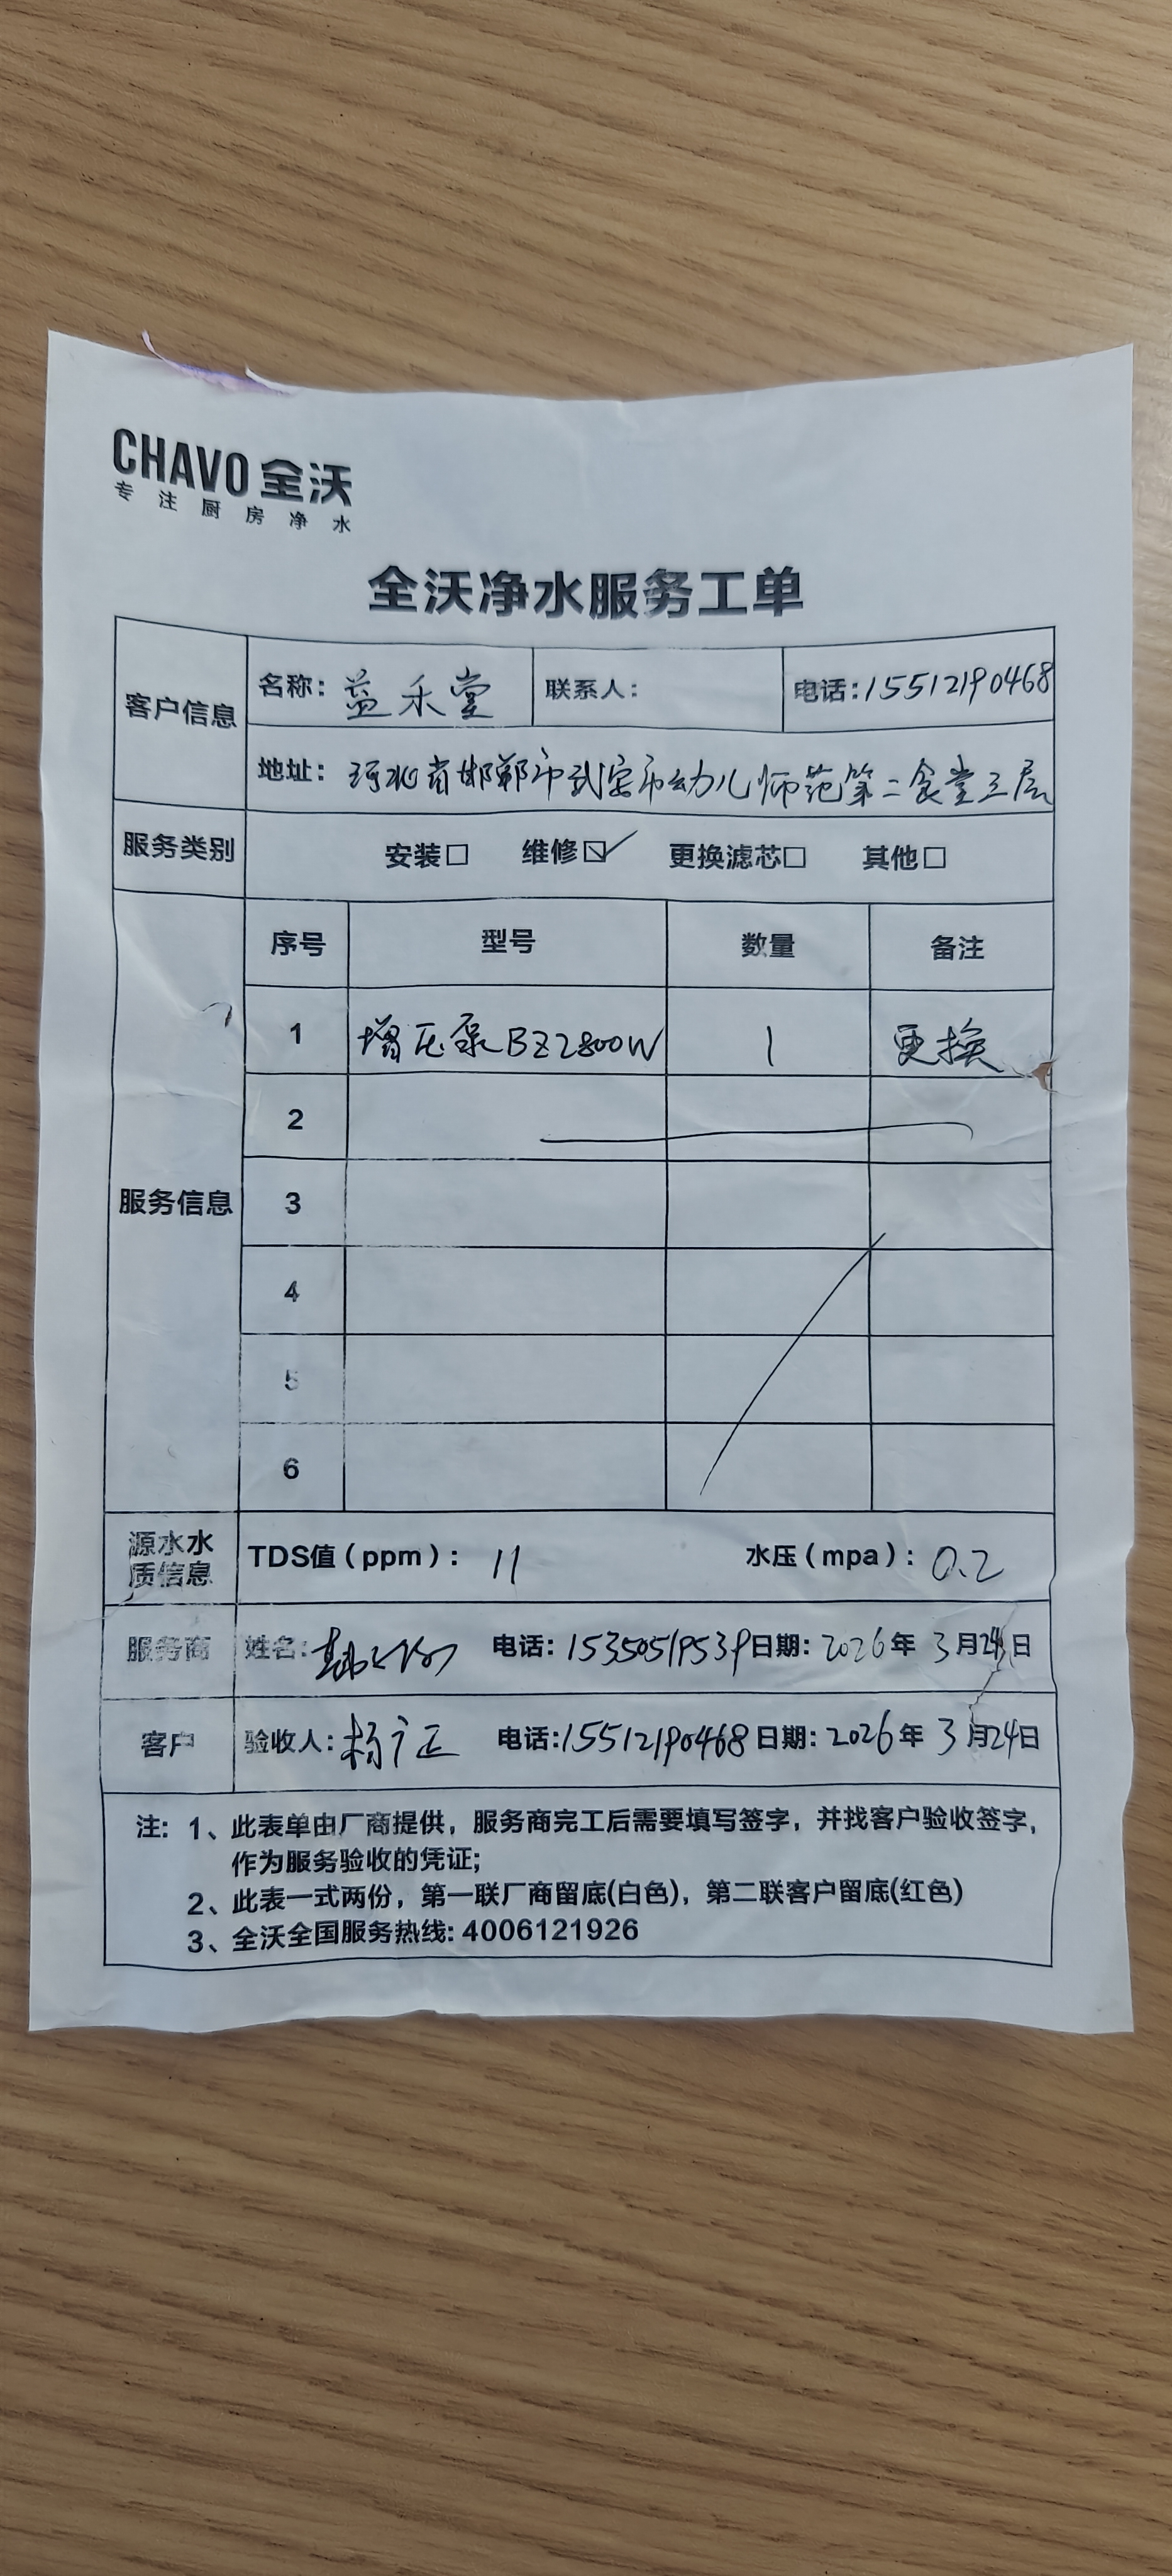 CHAVO 全沃
专注厨房净水
全沃净水服务工单
客户信息
名称：益禾堂 联系人： 电话：15512190468
地址：河北省邯郸市武安市幼儿师范第二食堂三层
服务类别 安装□ 维修☑ 更换滤芯□ 其他□
服务信息
序号 型号 数量 备注
1 增压泵BZ2800W 1 更换
2
3
4
5
6
源水水质信息 TDS值（ppm）：11 水压（mpa）：0.2
服务商 姓名： 电话：15350519539 日期：2026年3月24日
客户 验收人：杨广正 电话：15512190468 日期：2026年3月24日
注：1、此表单由厂商提供，服务商完工后需要填写签字，并找客户验收签字，
作为服务验收的凭证；
2、此表一式两份，第一联厂商留底(白色)，第二联客户留底(红色)
3、全沃全国服务热线：4006121926